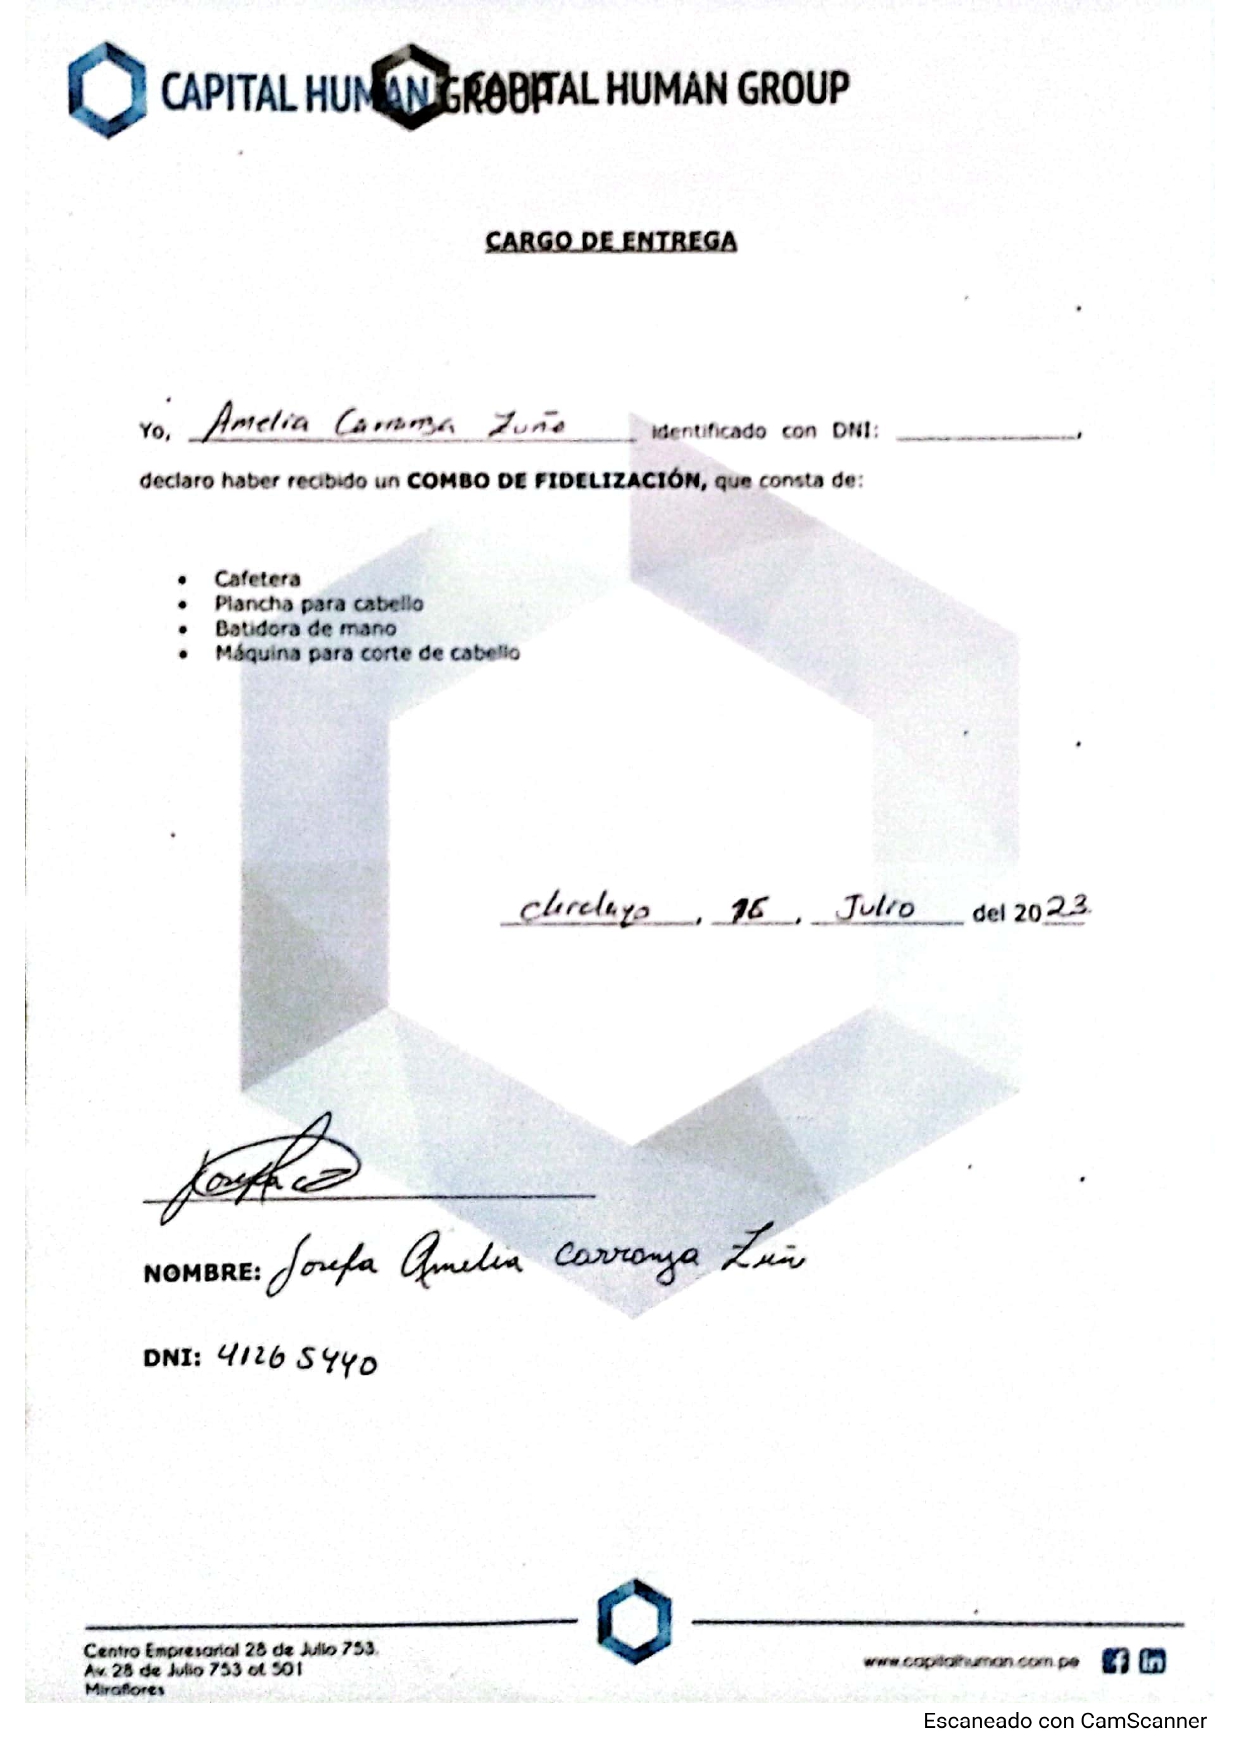 CAPITAL HUMAN GROUP CAPITAL HUMAN GROUP
CARGO DE ENTREGA
Yo, Amelia Carranza Zuño identificado con DNI: ____________,
declaro haber recibido un COMBO DE FIDELIZACIÓN, que consta de:
• Cafetera
• Plancha para cabello
• Batidora de mano
• Máquina para corte de cabello
Chiclayo, 16, Julio del 2023
NOMBRE: Josefa Amelia Carranza Zuñ
DNI: 41265440
Centro Empresarial 28 de Julio 753.
Av. 28 de Julio 753 of. 501
Miraflores
www.capitalhuman.com.pe
Escaneado con CamScanner